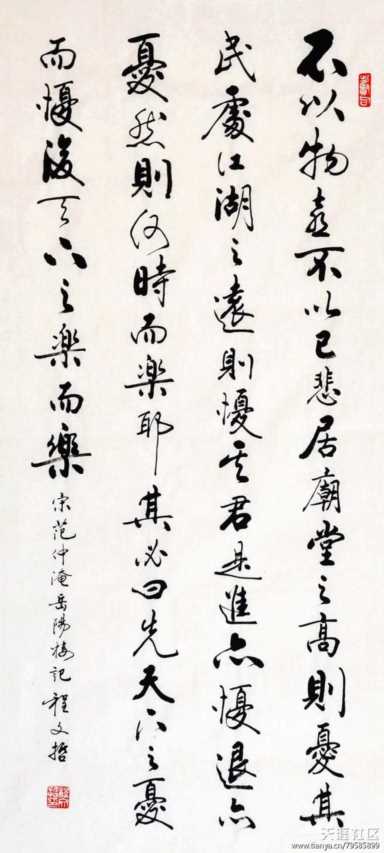 不以物喜不以己悲居廟堂之高則憂其
民處江湖之遠則懮其君是進亦懮退亦
憂然則何時而樂耶其必曰先天下之憂
而懮後天下之樂而樂
宋范仲淹岳陽樓記程文哲
天涯社区
www.tianya.cn/79585899